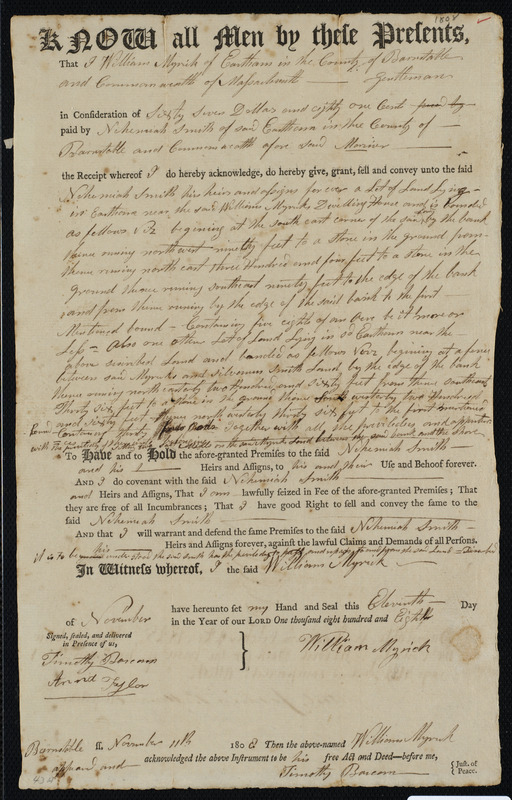 1808
KNOW all Men by these Presents,
That I William Myrick of Eastham in the County of Barnstable
and Commonwealth of Massachusetts Gentleman
in Consideration of Sixty Seven Dollars and eighty one Cents
paid by Nehemiah Smith of said Eastham in the County of
Barnstable and Commonwealth afore said Mariner
the Receipt whereof I do hereby acknowledge, do hereby give, grant, sell and convey unto the said
Nehemiah Smith his heirs and assigns for ever a Lot of Land Lying
in Eastham near the said William Myricks Dwelling House and is bounded
as follows viz begining at the south east corner of the by the bank
thence runing northwest ninety feet to a stone in the ground from
thence runing north east three Hundred and four feet to a stone in the
ground thence runing southeast ninety feet to the edge of the bank
and from thence runing by the edge of the said bank to the first
Mentioned bound - Containing five eights of an Acre be it more or
Less - Also one other Lot of Land Lying in sd Eastham near the
above Land and as follows viz begining at a
between said Myricks and Smith Land by the edge of the bank
thence runing north westerly two Hundred and sixty feet from thence
Thirty six feet to a stone in the ground thence westerly two Hundred
feet thence north westerly thirty six feet to the first mentioned
bound Containing Together with all the priviledges and
with the said Land between the said bank and the shore
To Have and to Hold the afore-granted Premises to the said Nehemiah Smith
and his Heirs and Assigns, to his and their Use and Behoof forever.
AND I do covenant with the said Nehemiah Smith
and Heirs and Assigns, That I am lawfully seized in Fee of the afore-granted Premises; That
they are free of all Incumbrances; That I have good Right to sell and convey the same to the
said Nehemiah Smith
AND that I will warrant and defend the same Premises to the said Nehemiah Smith
his Heirs and Assigns forever, against the lawful Claims and Demands of all Persons.
it is to be the said Smith has the to pass and
In Witness whereof, I the said William Myrick
have hereunto set my Hand and Seal this Eleventh Day
of November in the Year of our LORD One thousand eight hundred and Eight
Signed, sealed, and delivered
in Presence of us,
William Myrick
Timothy Bascom
Taylor
Barnstable ss. November 11th 1808 Then the above-named William Myrick
appeard and acknowledged the above Instrument to be his free Act and Deed—before me,
Timothy Bascom { Just. of Peace.